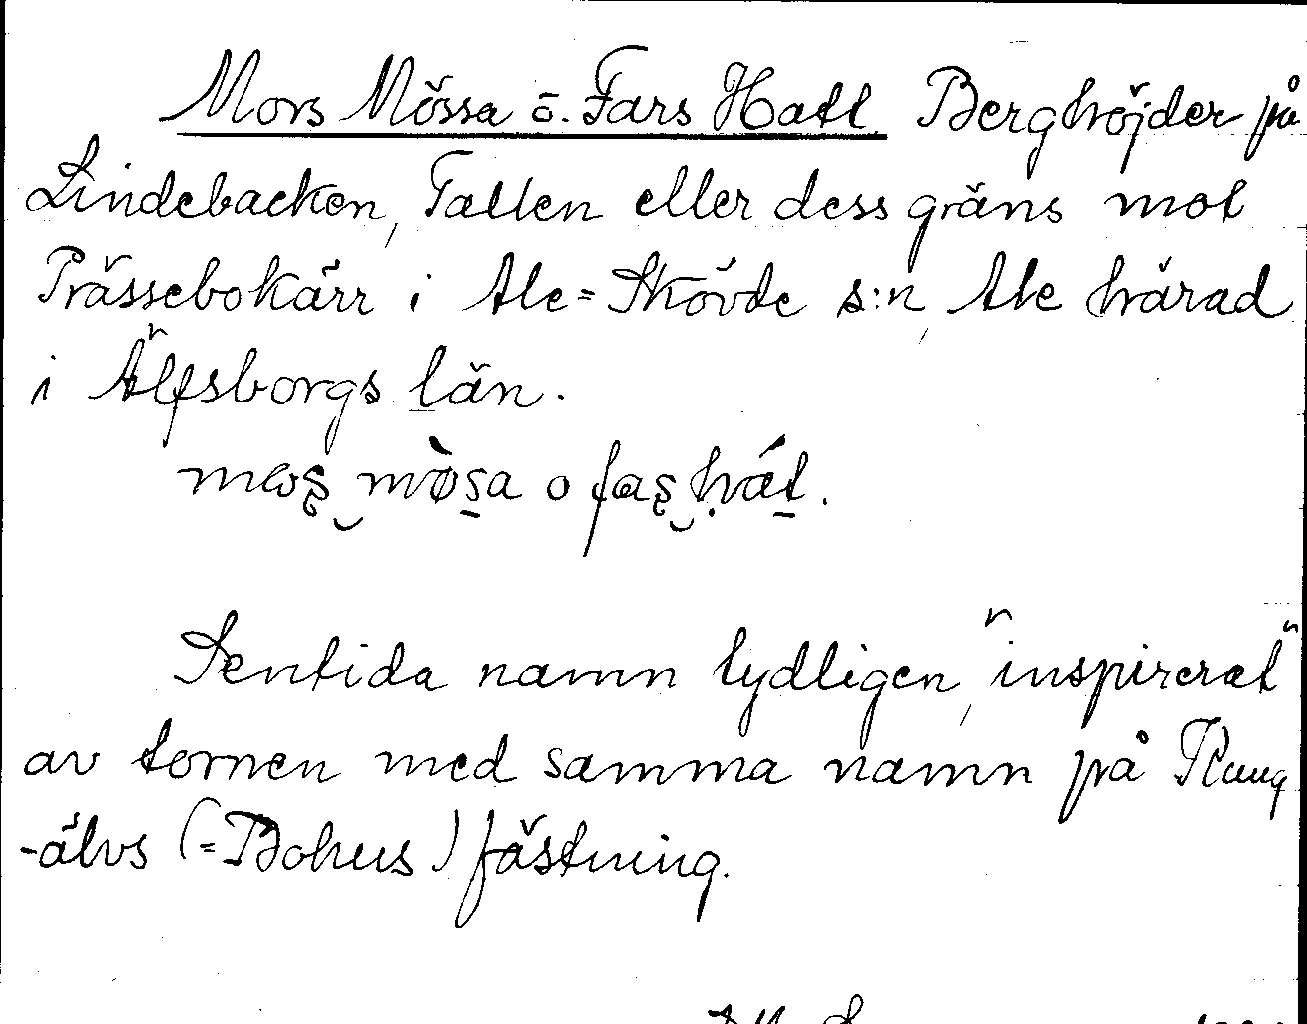 Mors Mössa o. Fars Hatt. Berghöjder på
Lindebacken, Tatten eller dess gräns mot
Prässebokärr i Ale=Skövde s:n, Ale härad
i Älfsborgs län.
mɷʂ‿mø̀s̱a o faʂ‿hát̲.
Sentida namn tydligen, "inspirerat"
av tornen med samma namn på Kung
-älvs (=Bohus) fästning.